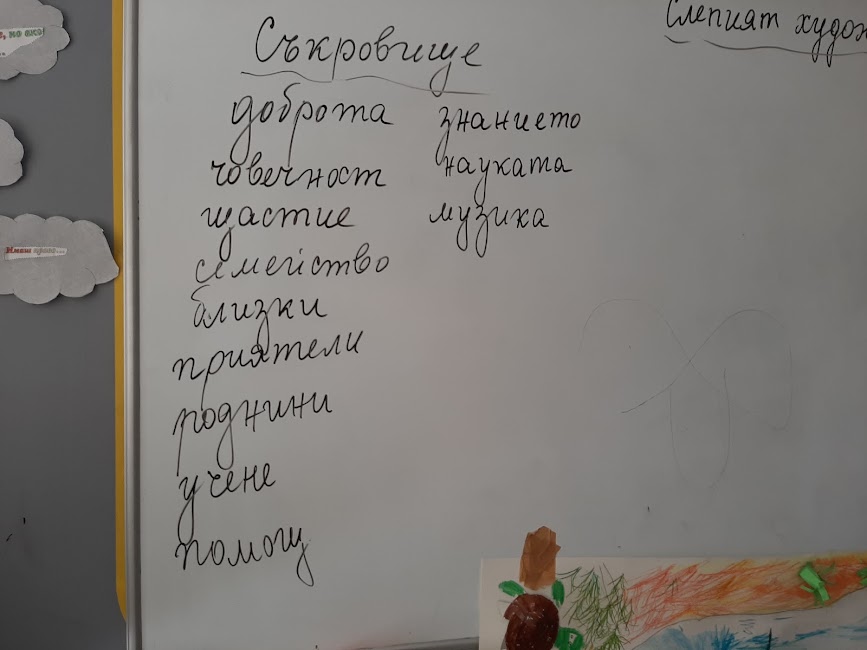 Съкровище
доброта
човечност
щастие
семейство
близки
приятели
роднини
учене
помощ
знанието
науката
музика
Слепият